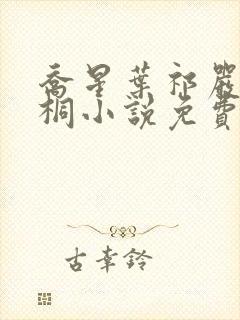 喬星葉祁嚴
桐小說免費
古幸鈴